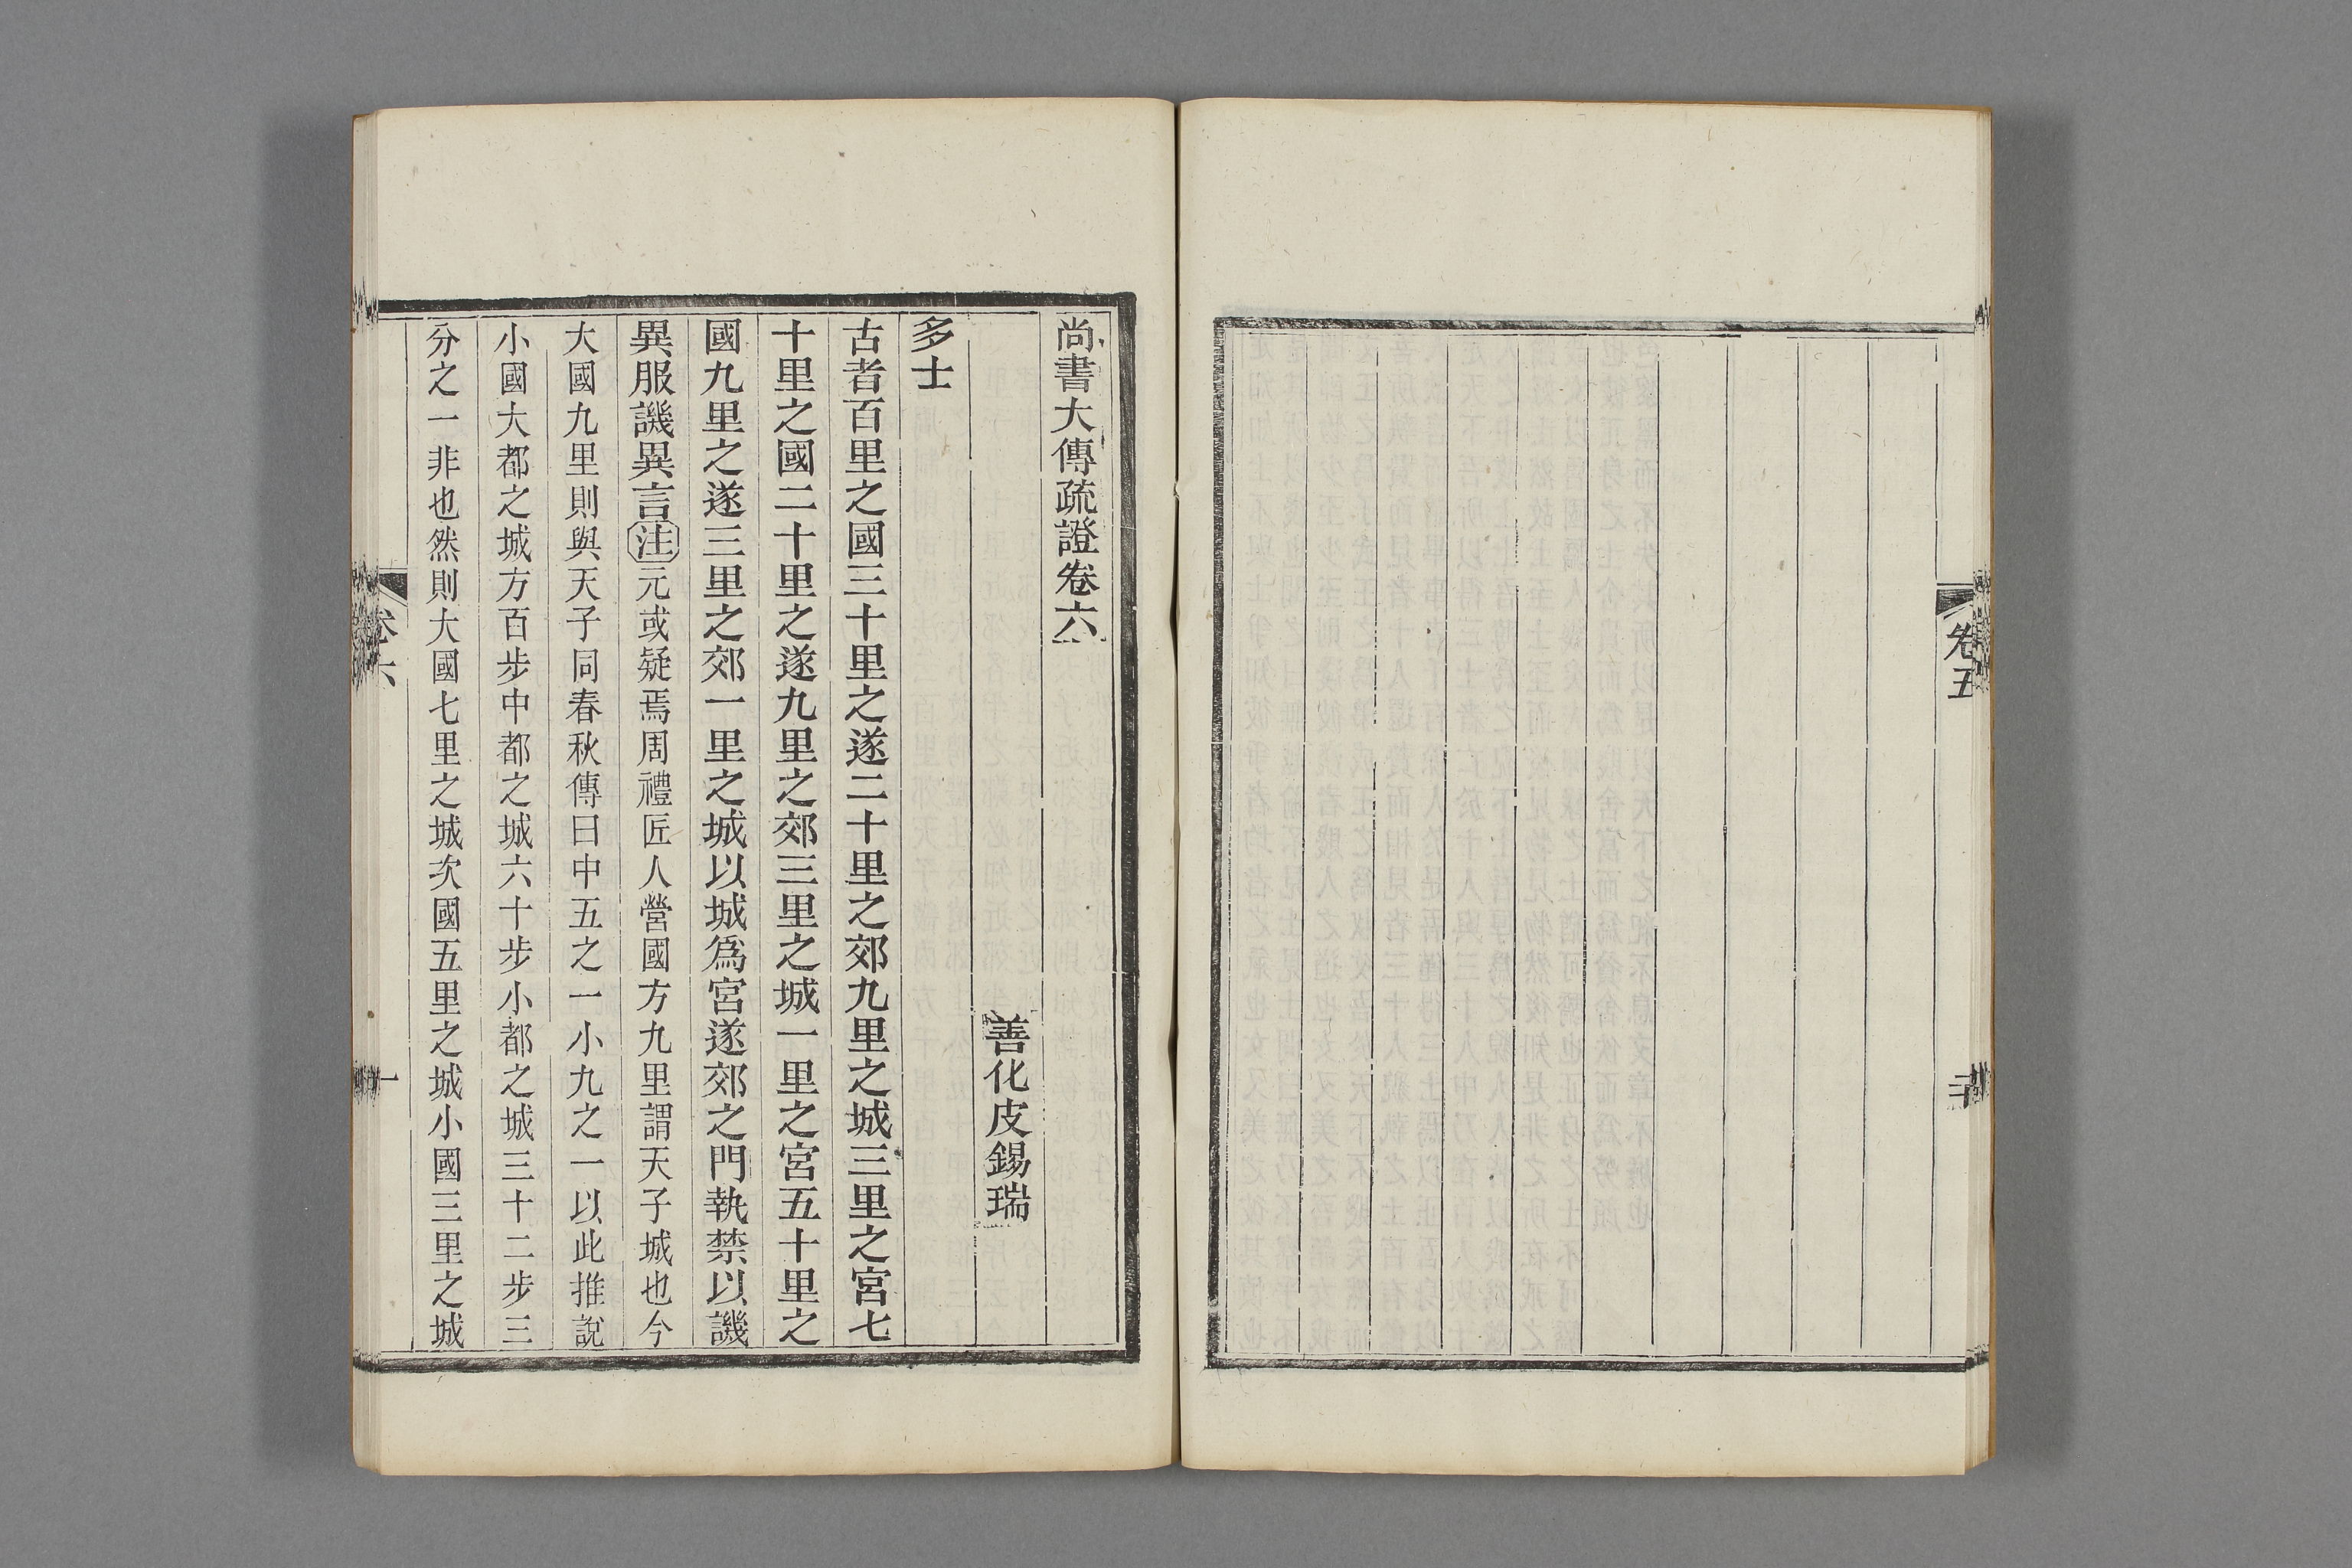 卷五
二十
尚書大傳疏證卷六
善化皮錫瑞
多士
古者百里之國三十里之遂二十里之郊九里之城三里之宮七
十里之國二十里之遂九里之郊三里之城一里之宮五十里之
國九里之遂三里之郊一里之城以城爲宮遂郊之門執禁以譏
異服譏異言注元或疑焉周禮匠人營國方九里謂天子城也今
大國九里則與天子同春秋傳曰中五之一小九之一以此推說
小國大都之城方百步中都之城六十步小都之城三十二步三
分之一非也然則大國七里之城次國五里之城小國三里之城
卷六
一